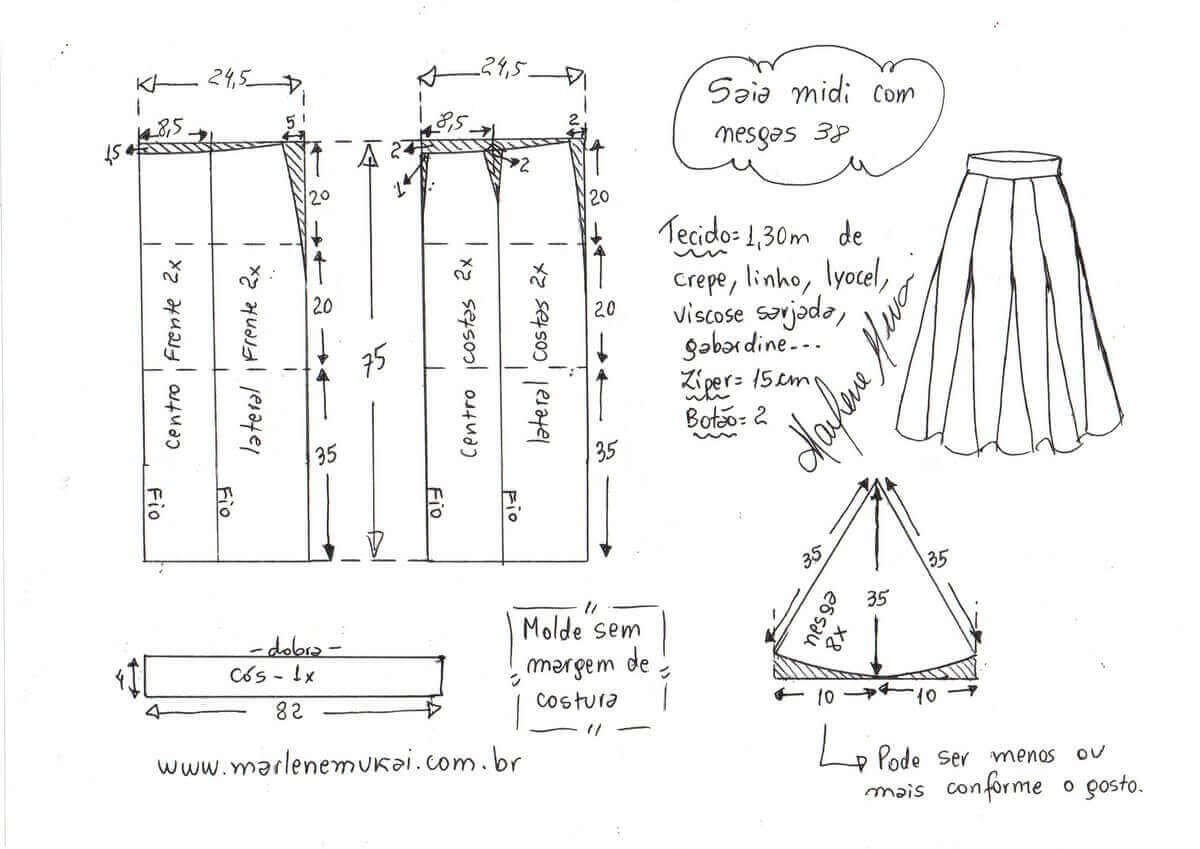 24,5
8,5
5
1,5
20
20
35
Centro Frente 2x
lateral Frente 2x
Fio
Fio
75
24,5
8,5
2
2
1
2
20
20
35
Centro costas 2x
lateral Costas 2x
Fio
Fio
Saia midi com
nesgas 38
Tecido= 1,30m de
crepe, linho, lyocel,
viscose sarjada,
gabardine---
Zíper= 15cm
Botão= 2
Marlene Mukai
35
35
35
nesga
8x
10
10
Pode ser menos ou
mais conforme o gosto.
- dobra -
Cós - 1x
4
82
Molde sem
margem de
costura
www.marlenemukai.com.br